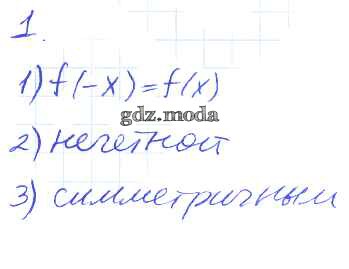 1.
1) f(-x)=f(x)
gdz.moda
2) нечетной
3) симметричным